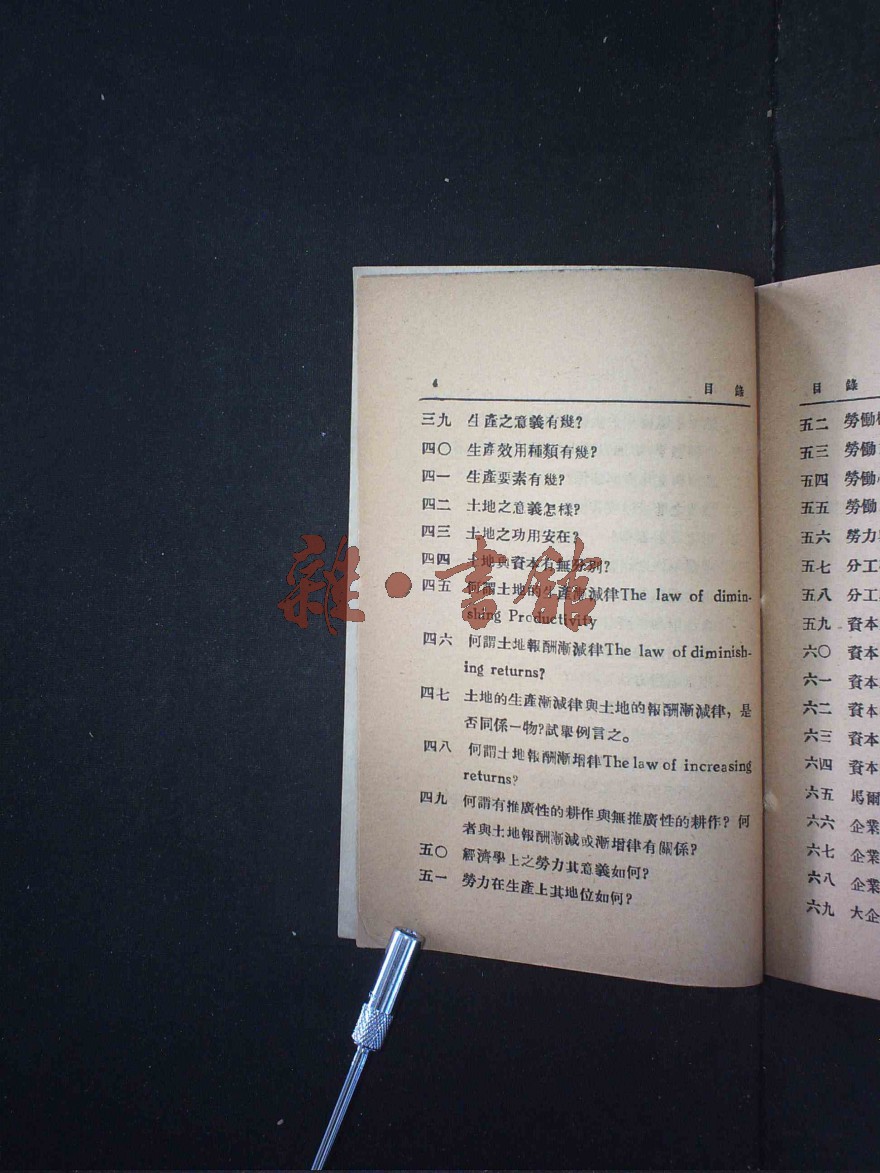 4 目錄
三九 生產之意義有幾?
四〇 生產效用種類有幾?
四一 生產要素有幾?
四二 土地之意義怎樣?
四三 土地之功用安在?
四四 土地與資本有無分別?
四五 何謂土地的生產漸減律The law of dimin-
shing Productivity
四六 何謂土地報酬漸減律The law of diminish-
ing returns?
四七 土地的生產漸減律與土地的報酬漸減律,是
否同係一物?試舉例言之。
四八 何謂土地報酬漸增律The law of increasing
returns?
四九 何謂有推廣性的耕作與無推廣性的耕作?何
者與土地報酬漸減或漸增律有關係?
五〇 經濟學上之勞力其意義如何?
五一 勞力在生產上其地位如何?
目錄
五二 勞働
五三 勞働
五四 勞働
五五 勞働
五六 勞力
五七 分工
五八 分工
五九 資本
六〇 資本
六一 資本
六二 資本
六三 資本
六四 資本
六五 馬爾
六六 企業
六七 企業
六八 企業
六九 大企
雜·書館